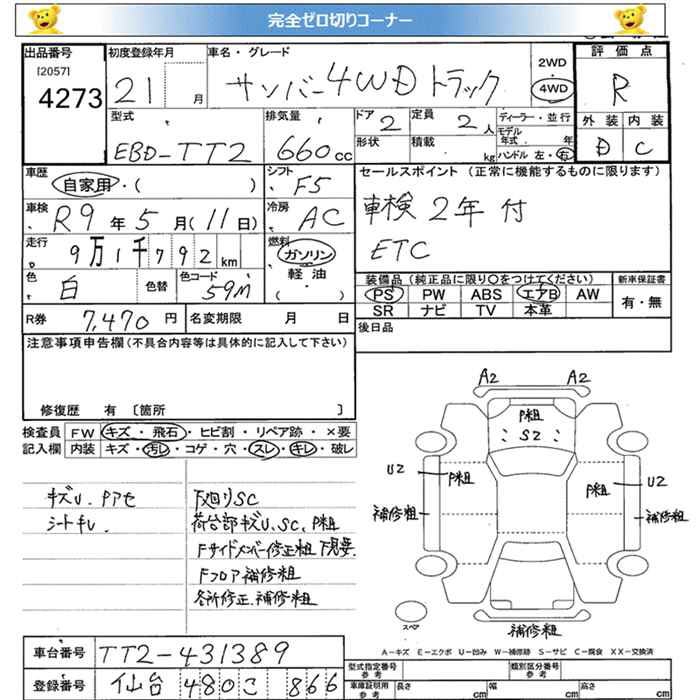 完全ゼロ切りコーナー
出品番号
[2057]
4273
初度登録年月
21 月
車名・グレード
サンバー4WD トラック
2WD
4WD
評価点
R
型式
EBD-TT2
排気量
660cc
ドア
2
定員
2人
形状
積載
kg
ディーラー・並行
モデル年式 年
ハンドル 左・右
外装 内装
D C
車歴
自家用・( )
シフト
F5
セールスポイント (正常に機能するものに限ります)
車検2年付
ETC
車検
R9年5月(11日)
冷房
AC
走行
9万1千792km
燃料
ガソリン
軽油
( )
色
白
色替
色コード
59M
装備品(純正品に限り○をつけてください)
PS PW ABS エアB AW
SR ナビ TV 本革
新車保証書
有・無
R券
7,470円
名変期限 月 日
後日品
注意事項申告欄(不具合内容等は具体的に記入して下さい)
修復歴 有 〔箇所 〕
検査員記入欄
FW キズ・飛石・ヒビ割・リペア跡・×要
内装 キズ・汚レ・コゲ・穴・スレ・キレ・破レ
キズU.Pアセ
シートキレ.
下廻りSC
荷台部キズU、SC、P粗
Fサイドメンバー修正粗 下見要.
Fフロア補修粗
各所修正.補修粗
A2 A2
P粗
S2
U2
P粗
P粗
U2
補修粗
補修粗
スペア
補修粗
A-キズ E-エクボ U-凹み W-補修跡 S-サビ C-腐食 XX-交換済
車台番号
TT2-431389
登録番号
仙台 480 こ 866
型式指定番号
参考
類別区分番号
参考
車庫証明用
参考
長さ cm
幅 cm
高さ cm